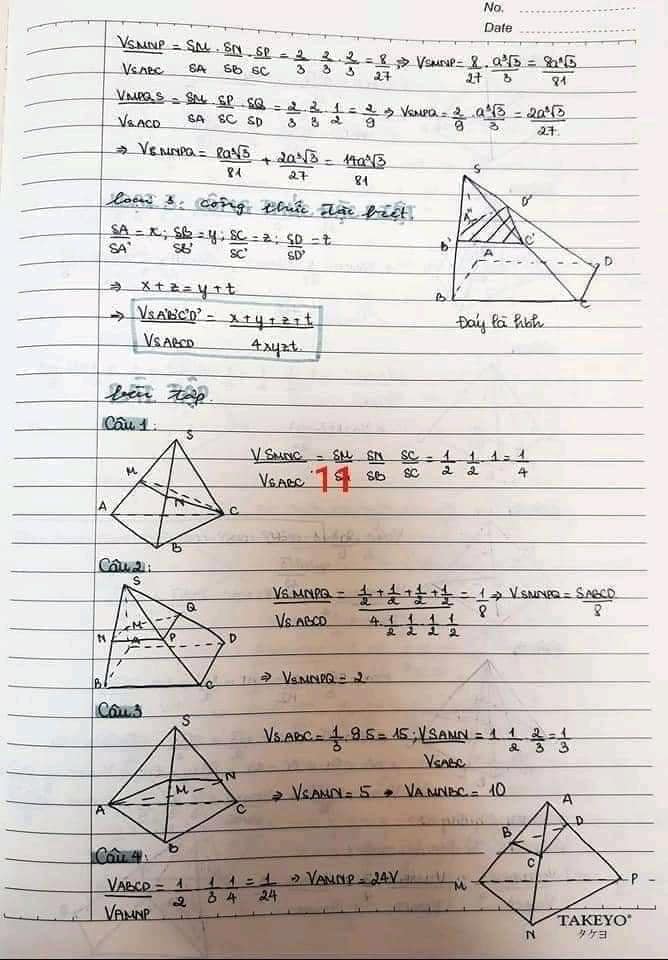 No.
Date
V_SMNP/V_SABC = SM/SA . SN/SB . SP/SC = 2/3 . 2/3 . 2/3 = 8/27 ⇒ V_SMNP = 8/27 . a³√3/3 = 8a³√3/81
V_MPQS/V_SACD = SM/SA . SP/SC . SQ/SD = 2/3 . 2/3 . 1/2 = 2/9 ⇒ V_SMPQ = 2/9 . a³√3/3 = 2a³√3/27
⇒ V_SMNPQ = 8a³√3/81 + 2a³√3/27 = 14a³√3/81
Loại 3: công thức đặc biệt
SA/SA' = x; SB/SB' = y; SC/SC' = z; SD/SD' = t
⇒ x + z = y + t
⇒ V_SA'B'C'D'/V_SABCD = x + y + z + t/4xyzt
S
A'
D'
B'
C'
A
D
B
C
Đáy là hbh
bài tập
Câu 1:
S
M
N
A
C
B
V_SMNC/V_SABC = SM/SA SN/SB SC/SC = 1/2 1/2 . 1 = 1/4
11
Câu 2:
S
Q
M
N
A
P
D
B
C
V_SMNPQ/V_SABCD = 1/2 + 1/2 + 1/2 + 1/2/4 . 1/2 . 1/2 . 1/2 . 1/2 = 1/8 ⇒ V_SMNPQ = SABCD/8
⇒ V_SMNPQ = 2
Câu 3
S
N
M
A
C
B
V_SABC = 1/3 . 9.5 = 15; V_SAMN/V_SABC = 1 . 1/2 . 2/3 = 1/3
⇒ V_SAMN = 5 ⇒ V_AMNBC = 10
Câu 4:
V_ABCD/V_AMNP = 1/2 . 1/3 1/4 = 1/24 ⇒ V_AMNP = 24V
A
B
D
C
M
P
N
TAKEYO®
タケヨ